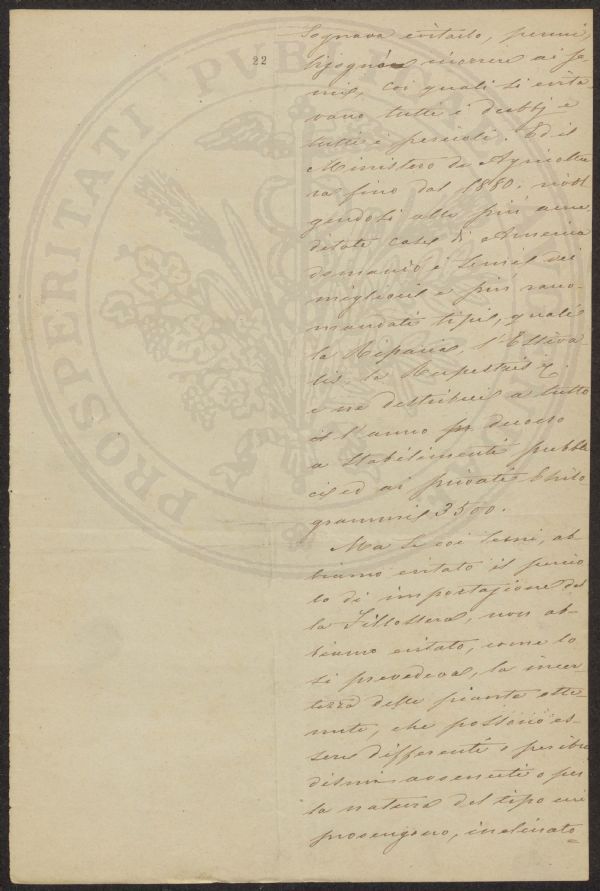 22
PROSPERITATI PUBLICAE
sognava evitarlo, perciò,
bisognò ricorrere ai se-
mi, coi quali si evita-
vano tutti i dubbj e
tutti i pericoli. Ed il
Ministero di Agricoltu
ra fino dal 1880. rivol
gendosi alle più accre
ditate case di America
domandò i semi dei
migliori e più racco-
mandati tipi, quali
la Riparia, l'Estiva
lis, la Rupestris &.
e ne distribuì a tutto
il l'anno decorso
a Stabilimenti pubbli
ci ed ai privati Chilo
grammi 3500.
Ma se coi semi, ab-
biamo evitato il perico
lo di importazione del
la Fillossera, non ab-
biamo evitato, come lo
si prevedeva, la incer
tezza delle piante otte-
nute, che possono es-
sere differenti o per ibri
dismi avvenuti o per
la natura del tipo cui
provengono, inclinato=